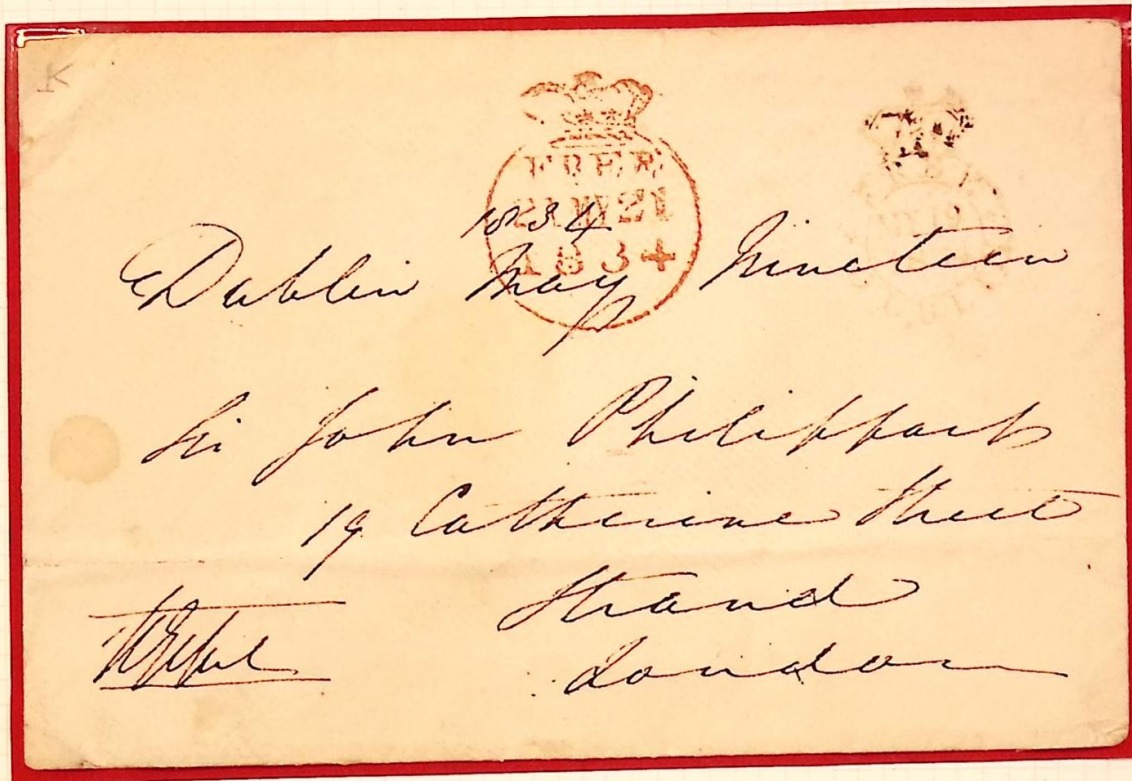 K
FREE
21 MY 21
1834
1834
Dublin May Nineteen
Sir John Philippart
19 Catherine Street
Strand
London